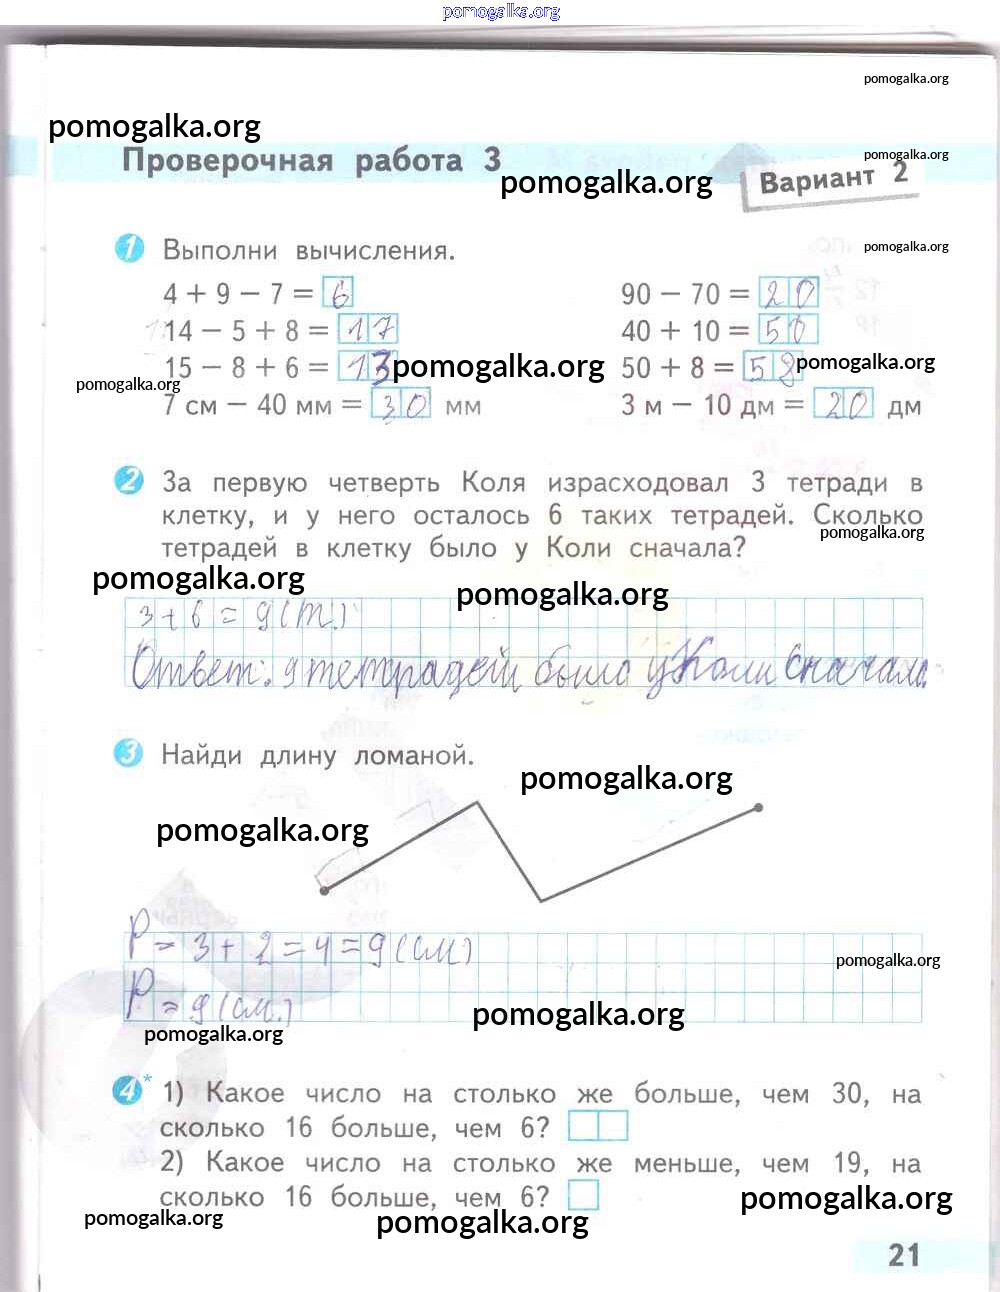 pomogalka.org
pomogalka.org
pomogalka.org
Проверочная работа 3
pomogalka.org
pomogalka.org
Вариант 2
1 Выполни вычисления.
pomogalka.org
4 + 9 − 7 = 6
90 − 70 = 20
14 − 5 + 8 = 17
40 + 10 = 50
15 − 8 + 6 = 13
pomogalka.org
50 + 8 = 58
pomogalka.org
pomogalka.org
7 см − 40 мм = 30 мм
3 м − 10 дм = 20 дм
2 За первую четверть Коля израсходовал 3 тетради в
клетку, и у него осталось 6 таких тетрадей. Сколько
pomogalka.org
тетрадей в клетку было у Коли сначала?
pomogalka.org
pomogalka.org
3+6=9(т.)
Ответ: 9 тетрадей было у Коли сначала.
3 Найди длину ломаной.
pomogalka.org
pomogalka.org
P=3+2=4=9(см)
pomogalka.org
P=9(см.)
pomogalka.org
pomogalka.org
4* 1) Какое число на столько же больше, чем 30, на
сколько 16 больше, чем 6?
2) Какое число на столько же меньше, чем 19, на
сколько 16 больше, чем 6?
pomogalka.org
pomogalka.org
pomogalka.org
21